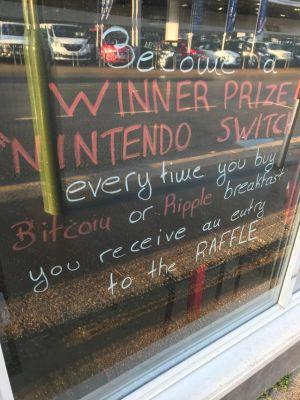 Become a
WINNER PRIZE!
"NINTENDO SWITCH
every time you buy
Bitcoin or Ripple breakfast
you receive an entry
to the RAFFLE